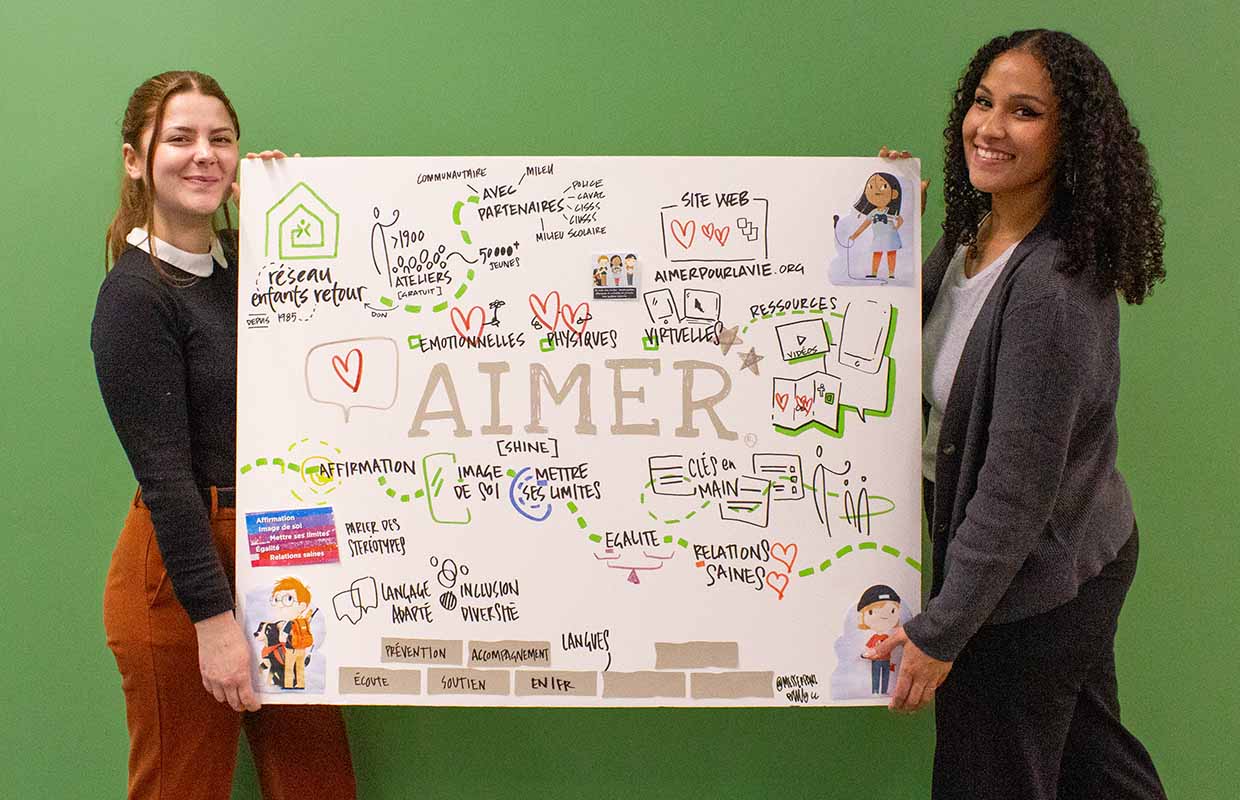 COMMUNAUTAIRE
MILEU
AVEC
PARTENAIRES
POLICE
CAVAC
CISSS
CIUSSS
MILIEU SCOLAIRE
SITE WEB
AIMERPOURLAVIE.ORG
réseau
enfants retour
DEPUIS 1985
>1900
ATELIERS
[GRATUIT]
DON
50000+
JEUNES
EMOTIONNELLES
PHYSIQUES
VIRTUELLES
RESSOURCES
VIDÉOS
AIMER
[SHINE]
AFFIRMATION
IMAGE
DE SOI
METTRE
SES LIMITES
CLÉS en
MAIN
EGALITE
RELATIONS
SAINES
Affirmation
Image de soi
Mettre ses limites
Égalité
Relations saines
PARLER DES
STÉRÉOTYPES
LANGAGE
ADAPTÉ
INCLUSION
DIVERSITÉ
LANGUES
PRÉVENTION
ACCOMPAGNEMENT
ÉCOUTE
SOUTIEN
EN/FR